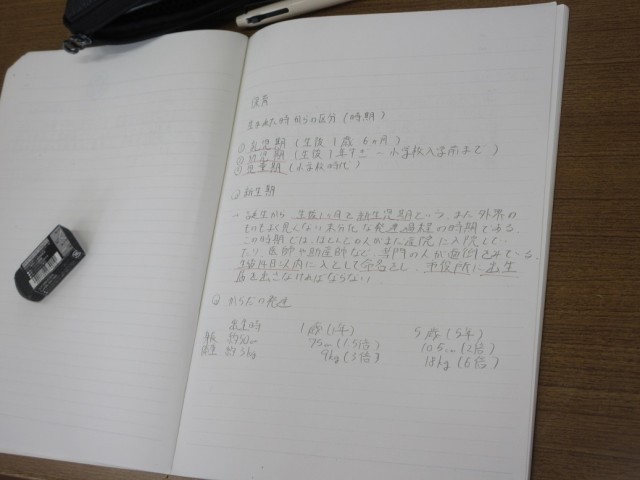 保育
生まれた時からの区分(時期)
①乳児期(生後1歳6ヶ月)
②幼児期(生後1年すぎ〜小学校入学前まで)
③児童期(小学校時代)
新生期
誕生から、生後1ヶ月を新生児期といい、まだ外界の
ものもよく見えない未分化な発達過程の時期である。
この時期では、ほとんどの人がまだ医院に入院して
たり、医師や助産師など、専門の人が面倒をみている。
14日以内に入として命名をし、市役所に出生
届を出さなければならない。
からだの発達
出生時 1歳(1年) 5歳(5年)
身長 約50cm 75cm(1.5倍) 105cm(2倍)
体重 約3kg 9kg(3倍) 18kg(6倍)